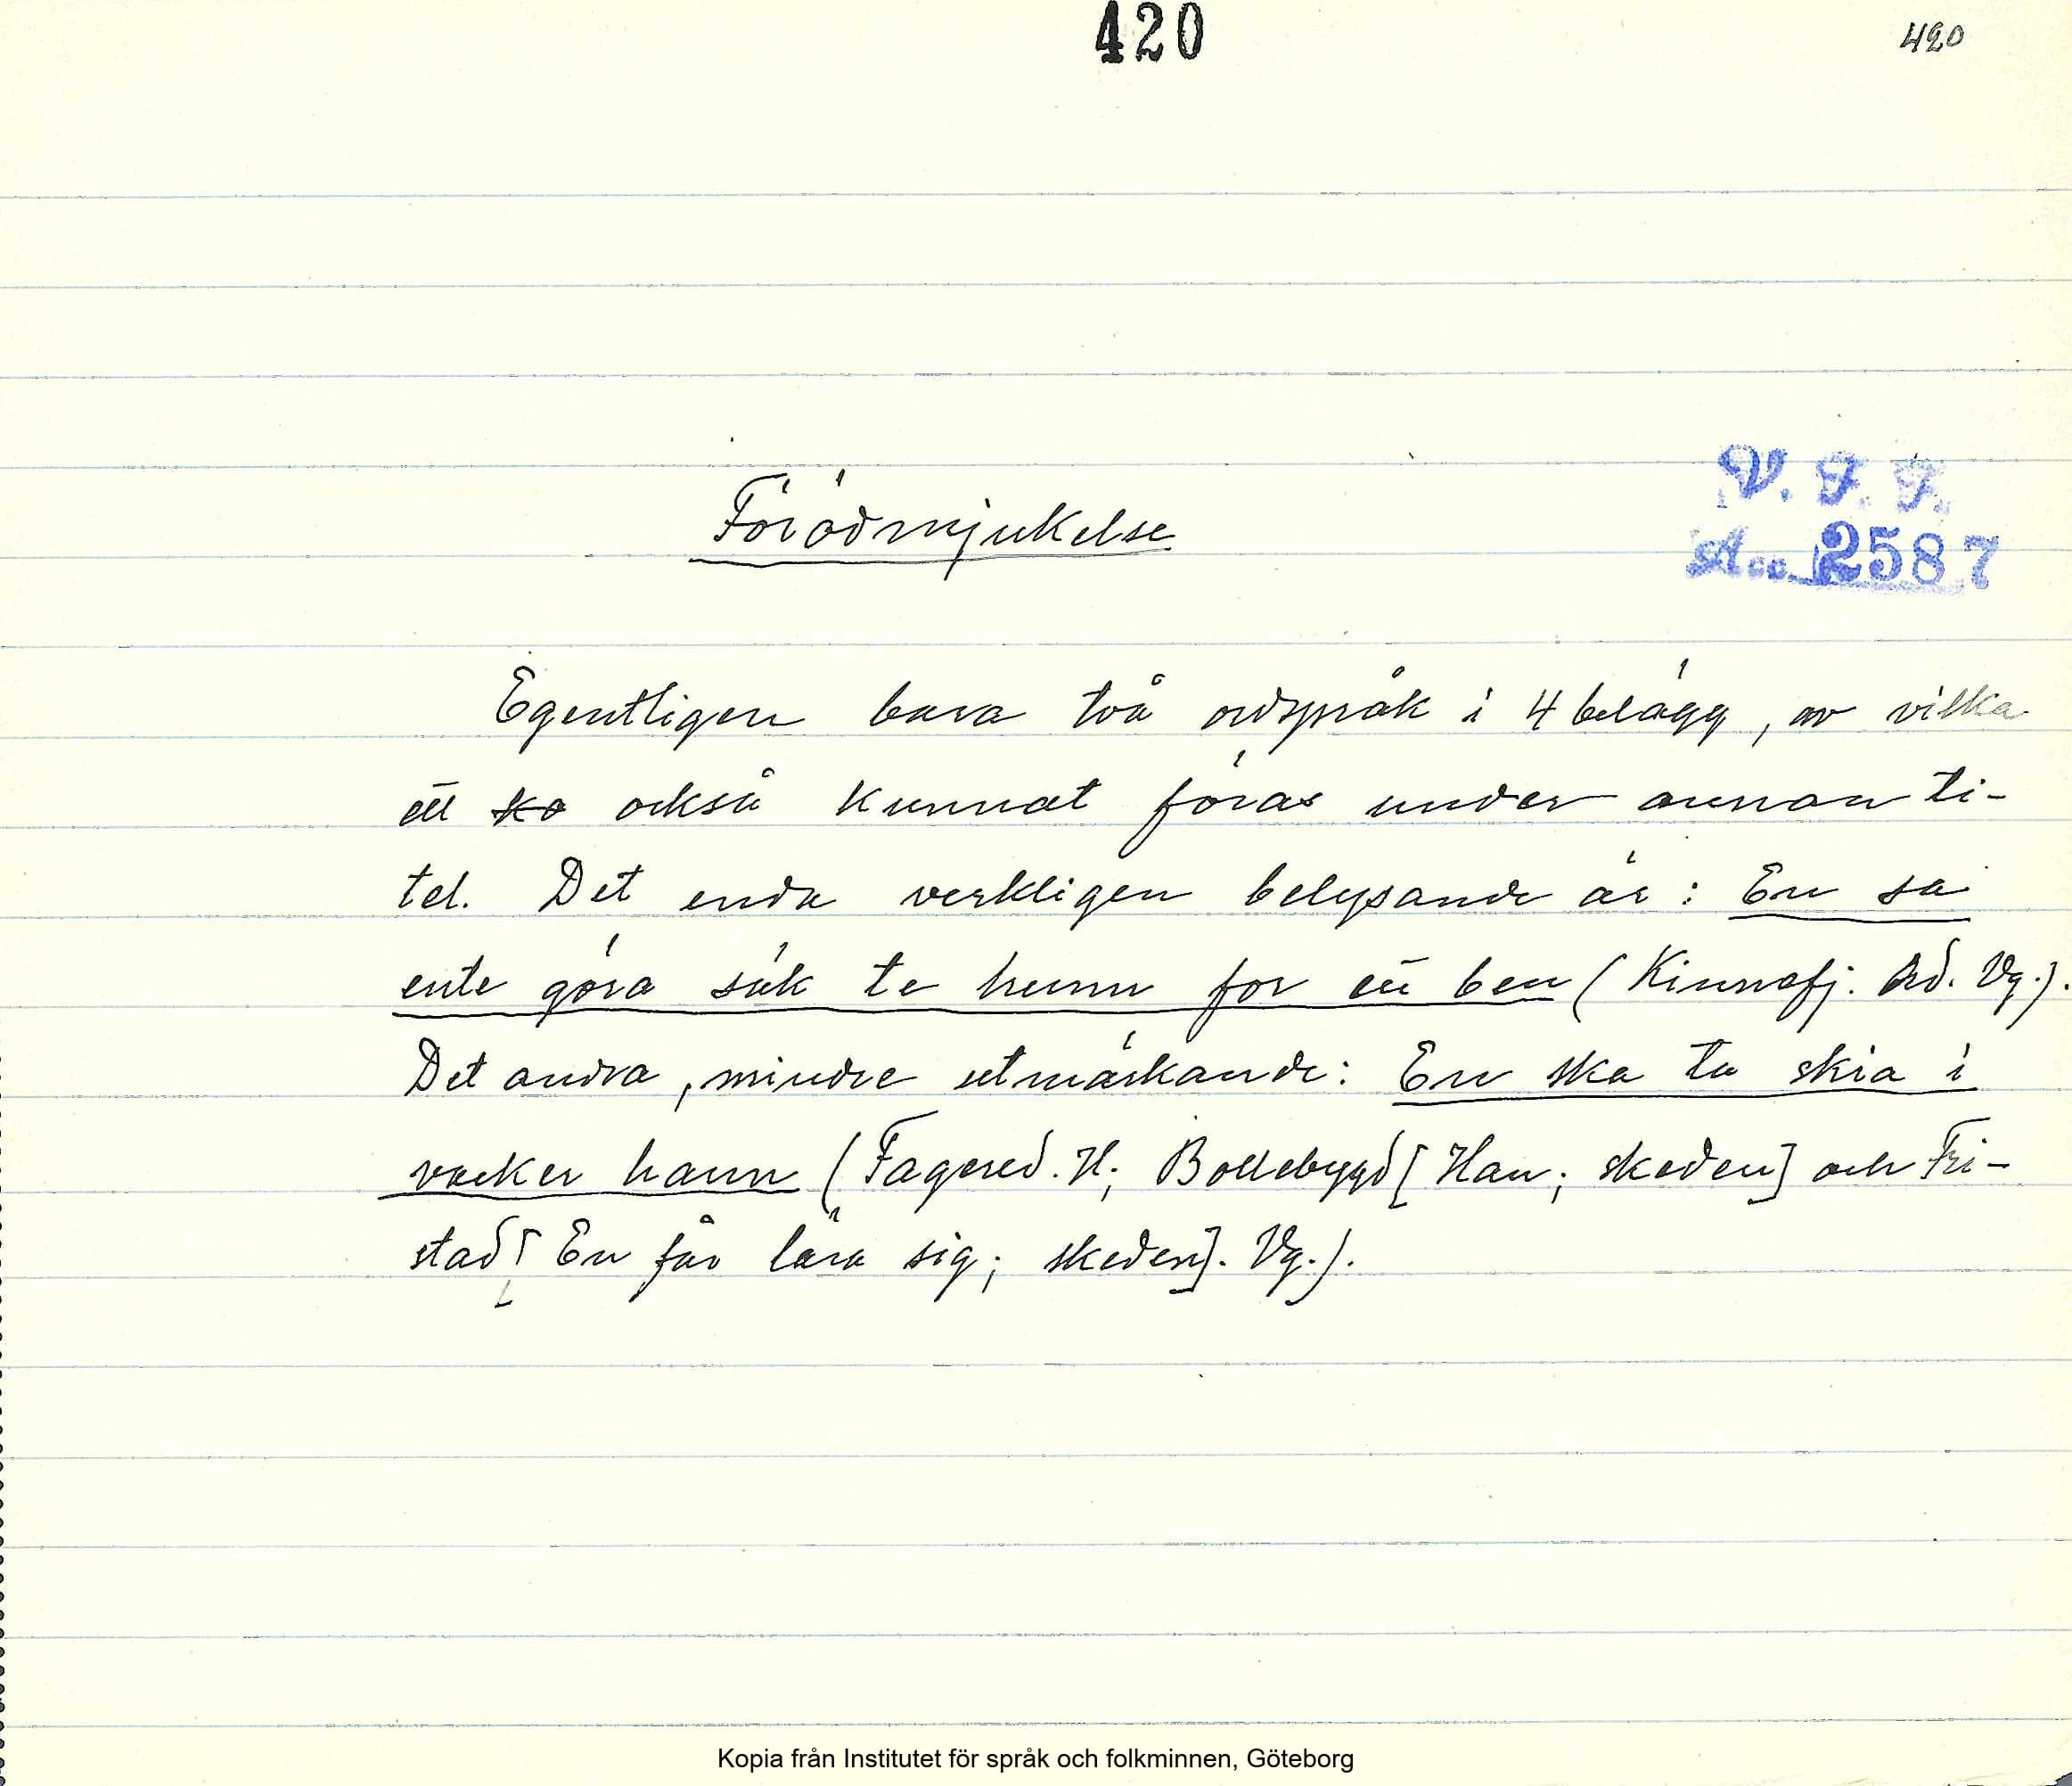 420
420
V. F. F.
Acc. 2587
Förödmjukelse
Egentligen bara två ordspråk i 4 belägg, av vilka
ett ~~ko~~ också kunnat föras under annan ti-
tel. Det enda verkligen belysande är: En sa
ente göra säk te hunn for ett ben (Kinnefj. hd. Vg.).
Det andra, mindre utmärkande: En ska ta skia i
vacker hann (Fagered. H; Bollebygd [Han; skeden] och Fri-
stad [En får lära sig; skeden]. Vg.).
Kopia från Institutet för språk och folkminnen, Göteborg